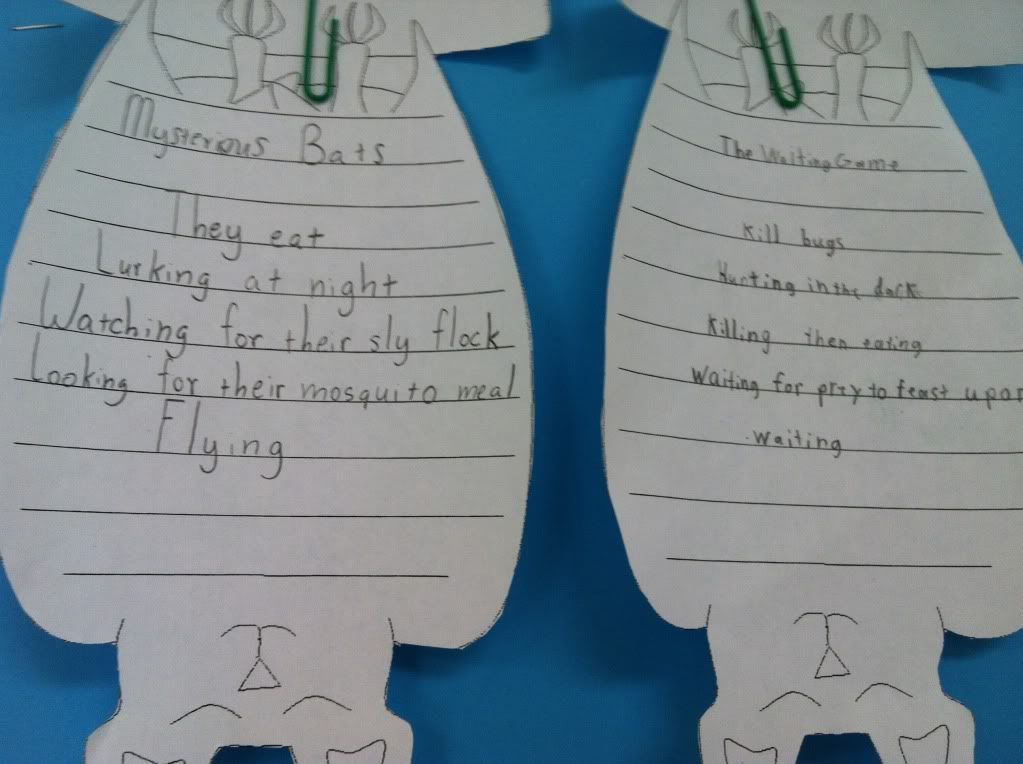 Mysterious Bats
They eat
Lurking at night
Watching for their sly flock
Looking for their mosquito meal
Flying
The Waiting Game
Kill bugs
Hunting in the dark
Killing then eating
Waiting for prey to feast upon
waiting